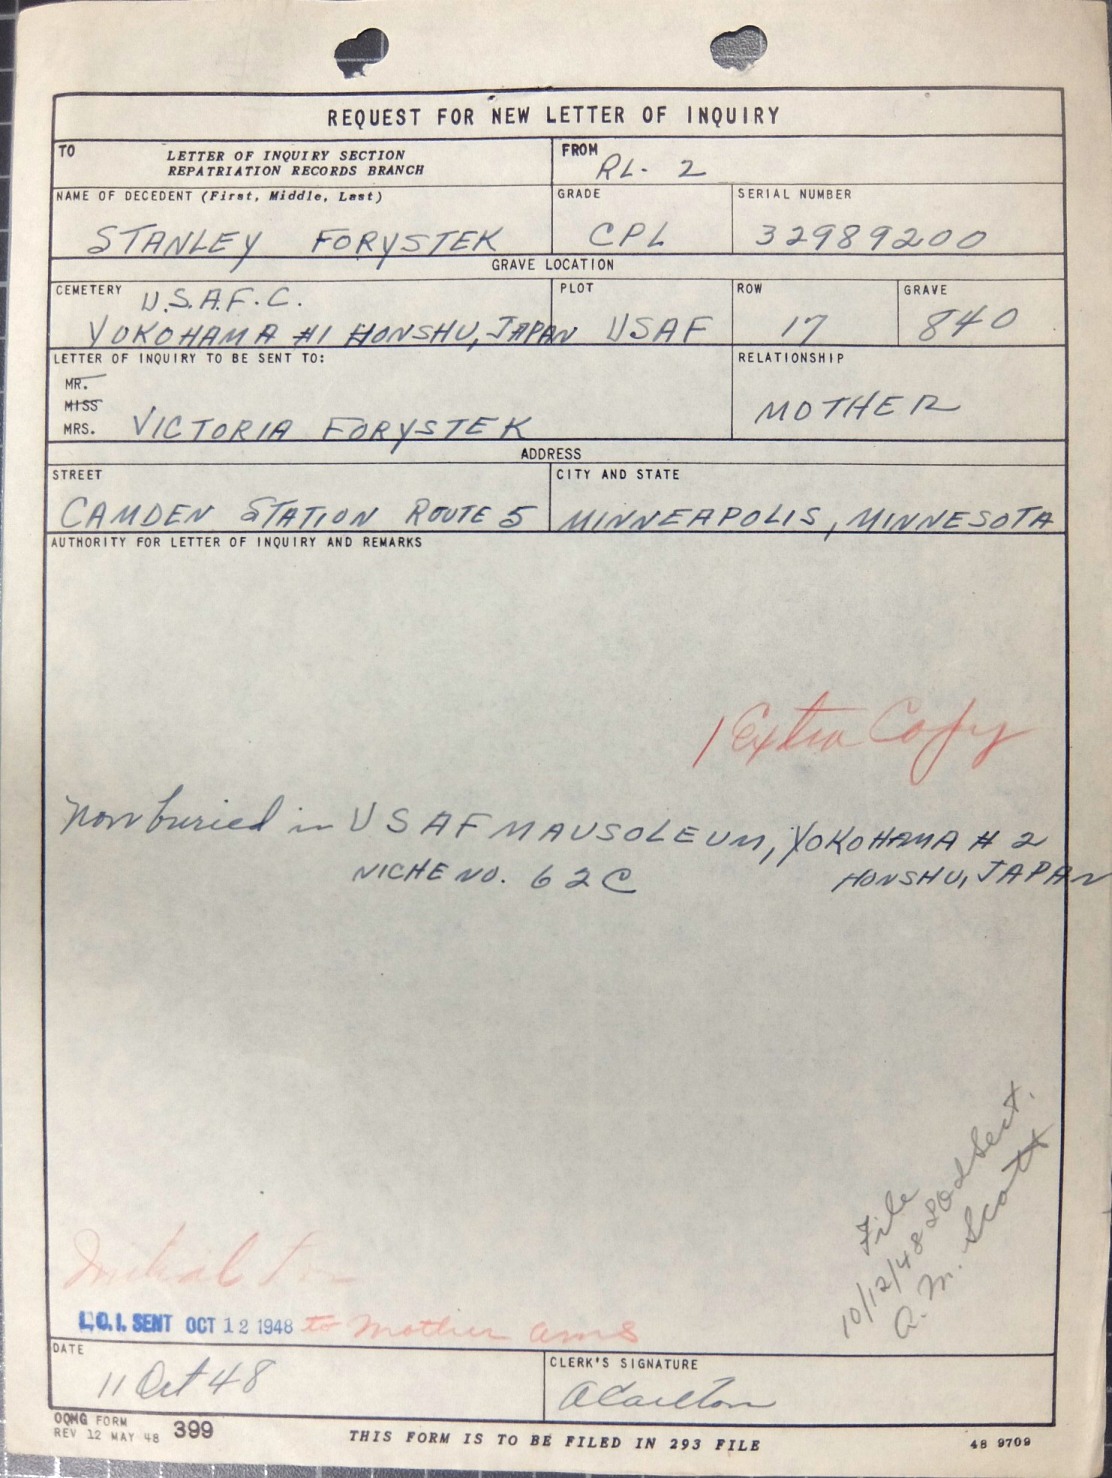 REQUEST FOR NEW LETTER OF INQUIRY
TO LETTER OF INQUIRY SECTION
REPATRIATION RECORDS BRANCH
FROM RL- 2
NAME OF DECEDENT (First, Middle, Last)
STANLEY FORYSTEK
GRADE
CPL
SERIAL NUMBER
32989200
GRAVE LOCATION
CEMETERY U.S.A.F.C.
YOKOHAMA #1 HONSHU, JAPAN
PLOT
USAF
ROW
17
GRAVE
840
LETTER OF INQUIRY TO BE SENT TO:
MR.
MISS
MRS. VICTORIA FORYSTEK
RELATIONSHIP
MOTHER
ADDRESS
STREET
CAMDEN STATION ROUTE 5
CITY AND STATE
MINNEAPOLIS, MINNESOTA
AUTHORITY FOR LETTER OF INQUIRY AND REMARKS
1 Extra Copy
Now buried in USAF MAUSOLEUM, YOKOHAMA # 2
NICHE NO. 62C HONSHU, JAPAN
File
10/12/48 Sect.
A. M. Scott
L.O.I. SENT OCT 12 1948 to Mother ams
DATE
11 Oct 48
CLERK'S SIGNATURE
A Carlton
OQMG FORM
REV 12 MAY 48 399
THIS FORM IS TO BE FILED IN 293 FILE
48 9709